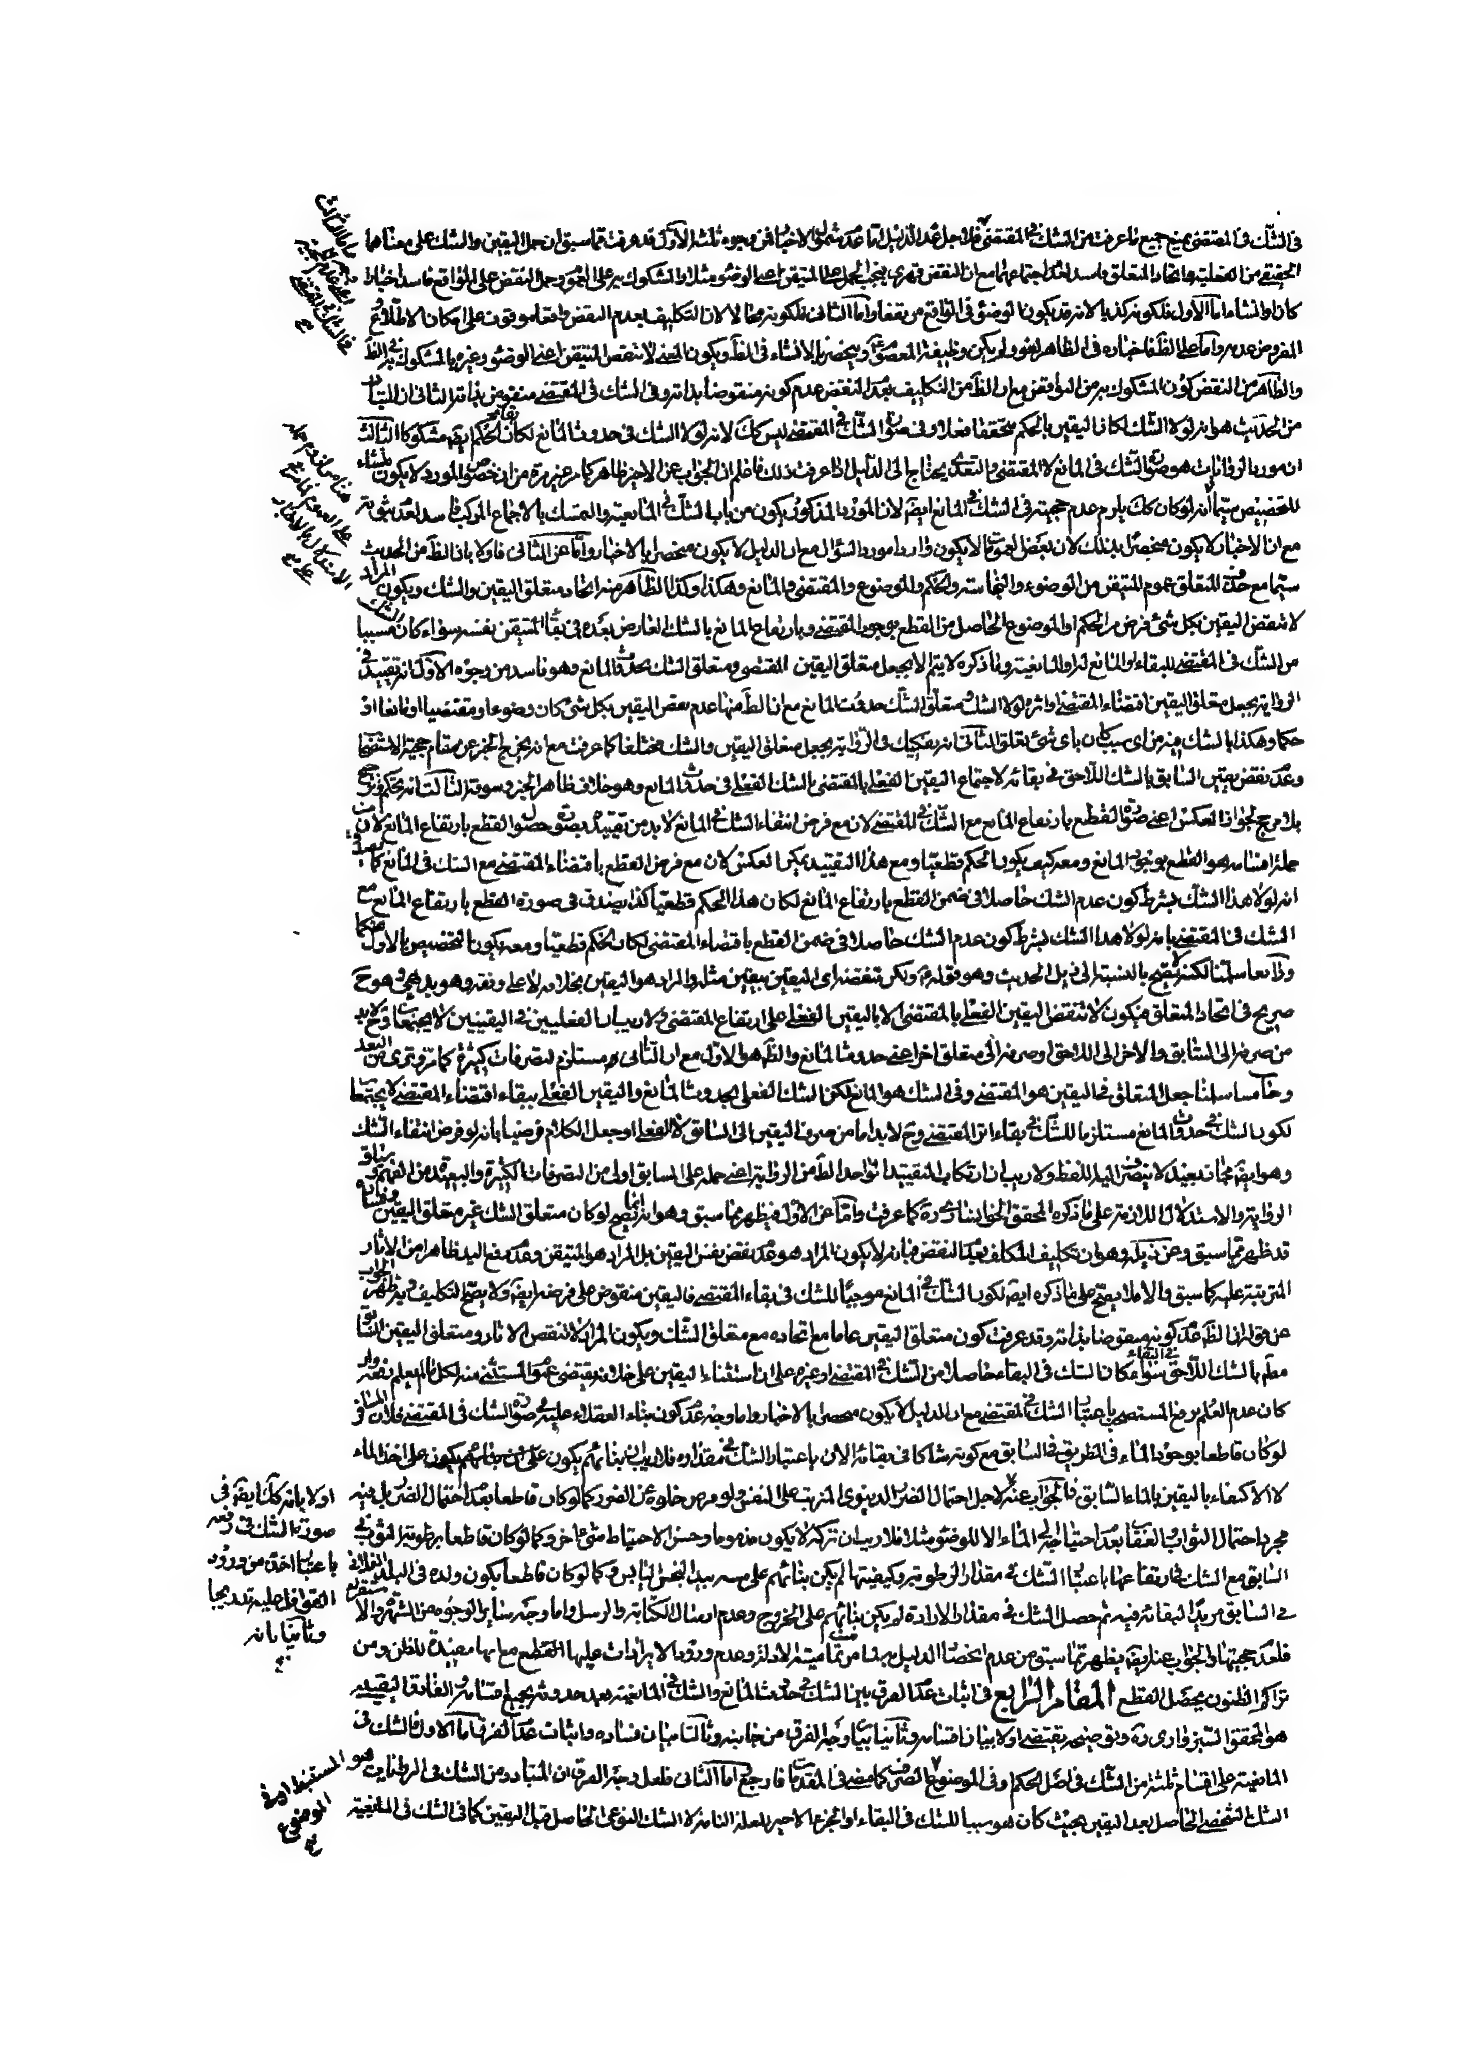 في الشك في المقتضي بمنع جميع ما عرفت من الشك في المقتضي فلاجل عدم الدليل اما عدم شمول الاخبار فمن وجوه ثلثة الاول قد عرفت مما سبق ان حمل اليقين والشك على معناهما
الحقيقي من الفعلية واتحاد المتعلق فاسد لعدم اجتماعهما مع ان النقض قهري فيجب الحمل على المتيقن اعني الوضوء مثلا والمشكوك وحمل النقض على الواقع فاسد اخبارا
كان او انشاء اما الاول فلكونه كذبا لانه قد يكون الوضوء في الواقع منتقضا واما الثاني فلكونه محالا لان التكليف بعدم النقض واقعا موقوف على امكان الاطلاع
المفروض عدمه واما على الظاهر فاخباره في الظاهر لغو ولم يكن وظيفة المعصوم وينحصر بالانشاء في الظاهر ويكون المعنى لا تنقض المتيقن اعني الوضوء وغيره بالمشكوك في الظاهر
والظاهر من النقض كون المشكوك مع ان الظاهر من التكليف بعدم النقض عدم كونه منقوضا بذاته وفي الشك في المقتضي منقوض بذاته الثاني ان المتبادر
من الحديث هو انه لولا الشك لكان اليقين بالحكم متحققا فعلا وفي صورة الشك في المقتضي ليس كك لانه لولا الشك في حدوث المانع لكان الحكم ايضا مشكوكا الثالث
ان مورد الروايات هو صورة الشك في المانع لا المقتضي والتعدي يحتاج الى الدليل اذا عرفت ذلك فاعلم ان الجواب عن الاخير ظاهر كما مر غير مرة من ان خصوص المورد لا يكون
للتخصيص سيما انه لو كان كك يلزم عدم حجيته في الشك في المانع ايضا لان المورد المذكور يكون من باب الشك في المانعية والتمسك بالاجماع المركب فاسد لعدم ثبوته
مع ان الاخبار لا يكون منحصرا بذلك لان بعض العمومات لا يكون واردا مورد السؤال مع ان الدليل لا يكون منحصرا بالاخبار واما عن الثاني فاولا بان الظاهر من الحديث
سيما مع حذف المتعلق عموم المتيقن من الوضوء والنجاسة والحكم والموضوع والمقتضي والمانع وهكذا وكذا الظاهر منه اتحاد متعلق اليقين والشك ويكون المراد
لا تنقض اليقين بكل شئ فرض من الحكم او الموضوع الحاصل من القطع بوجود المقتضي وبارتفاع المانع بالشك العارض بعده في بقاء المتيقن بنفسه سواء كان مسببا
من الشك في المقتضي للبقاء او المانع او المانعية وما ذكره لا يتم الا بجعل متعلق اليقين المقتضي ومتعلق الشك بحدوث المانع وهو فاسد من وجوه الاول انه تقييد في
الرواية بجعل متعلق اليقين اقتضاء المقتضي واثره لولا الشك ومتعلق الشك حدوث المانع مع ان الظاهر منها عدم نقض اليقين بكل شئ كان وضوءا او مقتضيا او مانعا او
حكما وهكذا بالشك فيه من اي سبب كان باي شئ تعلق الثاني انه تفكيك في الرواية بجعل متعلق اليقين والشك مختلفا كما عرفت مع انه يخرج الخبر عن مقام حجية الاستصحاب
وعدم نقض يقين السابق بالشك اللاحق في بقائه لاجتماع اليقين الفعلي بالمقتضي بالشك الفعلي في حدوث المانع وهو خلاف ظاهر الخبر وسوقه الثالث انه تحكم وترجيح
بلا مرجح لجواز العكس اعني صورة القطع بارتفاع المانع مع الشك في المقتضي لان مع فرض انتفاء الشك في المانع لا بد من تقييده بصورة حصول القطع بارتفاع المانع لان من
جملة اقسامه هو القطع بوجود المانع ومعه كيف يكون الحكم قطعيا ومع هذا التقييد يمكن العكس لان مع فرض القطع باقتضاء المقتضي مع الشك في المانع كما يصدق
انه لولا هذا الشك بشرط كون عدم الشك حاصلا في ضمن القطع بارتفاع المانع لكان هذا الحكم قطعيا كذا يصدق في صورة القطع بارتفاع المانع مع
الشك في المقتضي بانه لولا هذا الشك بشرط كون عدم الشك حاصلا في ضمن القطع باقتضاء المقتضي لكان الحكم قطعيا ومعه يكون التخصيص بالاول تحكما
ورابعا سلمنا لكنه لا يصح بالنسبة الى ذيل الحديث وهو قوله ع ولكن تنقضه اي اليقين بيقين مثله والمراد هو اليقين بخلافه لا على وفقه وهو بديهي وهو ح
صريح في اتحاد المتعلق فيكون لا تنقض اليقين الفعلي بالمقتضي الا باليقين الفعلي على ارتفاع المقتضي ولا ريب ان الفعليين في اليقينين لا يجتمعان وح لا بد
من صرفه الى السابق والاخر الى اللاحق او صرفه الى متعلق اخر اعني حدوث المانع والظاهر هو الاول مع ان الثاني مستلزم لتصرفات كثيرة كما مر
وخامسا سلمنا جعل المتعلق في اليقين هو المقتضي وفي الشك هو المانع لكن الشك الفعلي بحدوث المانع واليقين الفعلي ببقاء اقتضاء المقتضي لا يجتمعان
لكون الشك في حدوث المانع مستلزما للشك في بقاء اثر المقتضي وح لا بد اما من صرف اليقين الى السابق لا الفعلي او جعل الكلام فرضيا بانه لو فرض انتفاء الشك
وهو ايضا مجاز بعيد لا ينصرف اليه اللفظ ولا ريب ان ارتكاب التقييد الواحد الظاهر من الرواية اعني حمله على السابق اولى من التصرفات الكثيرة والبعيدة من الفهم و
الرواية والاستدلال اللازمة على ما ذكره المحقق الخوانساري ره كما عرفت واما عن الاول فيظهر مما سبق وهو انه انما يصح لو كان متعلق الشك غير متعلق اليقين
قد ظهر مما سبق وعن ذيله وهو ان تكليف المكلف بعدم النقض فبانه لا يكون المراد هو عدم نقض نفس اليقين بل المراد هو المتيقن وعدم رفع اليد ظاهرا من الاثار
المترتبة عليه كما سبق والا فلا يصح على ما ذكره ايضا لكون الشك في المانع موجبا للشك في بقاء المقتضي فاليقين منقوض على فرضه ايضا ولا يصح التكليف فيه وظهر الجواب
عن قوله ان الظاهر عدم كونه منقوضا بذاته وقد عرفت كون متعلق اليقين عاما مع اتحاده مع متعلق الشك ويكون المراد لا تنقض الاثار ومتعلق اليقين السابق
معلم بالشك اللاحق سواء كان الشك في البقاء حاصلا من الشك في المقتضي او غيره على ان استثناء اليقين على خلافه يقتضي عموم المستثنى منه لكل ما لم يعلم نقضه ولو
كان عدم العلم برفع المستصحب باعتبار الشك في المقتضي مع ان الدليل لا يكون منحصرا بالاخبار واما وجه عدم كون بناء العقلاء عليه في صورة الشك في المقتضي فلان المسافر
لو كان قاطعا بوجود الماء في الطريق في السابق مع كونه شاكا في بقائه الان باعتبار الشك في مقداره فلا ريب ان بنائهم يكون على اخذ الماء
لا الاكتفاء باليقين بالماء السابق فالجواب عنه لاجل احتمال الضرر الدنيوي المترتب على النفس ولو فرض خلوه عن الضرر كما لو كان قاطعا بعدم احتمال الضرر بل فيه
مجرد احتمال الثواب والعقاب بعدم احتياجه الى الماء الا للوضوء مثلا فلا ريب ان تركه لا يكون مذموما وحسن الاحتياط شئ اخر وكما لو كان قاطعا برطوبة الثوب في
السابق مع الشك في ارتفاعها باعتبار الشك في مقدار الرطوبة وكيفيتها لم يكن بنائهم على مسه بيد النجس اليابس وكما لو كان قاطعا بكون ولده في البلد الفلاني
في السابق مريدا لبقائه فيه ثم حصل الشك في مقدار الارادة لم يكن بنائهم على الخروج وعدم ارسال الكتابة والرسل واما وجه سائر الوجوه من الشهرة والا
فلعدم حجيتها والجواب عنه ايضا يظهر مما سبق من عدم انحصار الدليل بهذا من تمامية الادلة وعدم ورود الايرادات عليها القطع مع انها مفيدة للظن ومن
تراكم الظنون يحصل القطع المقام الرابع في اثبات عدم الفرق بين الشك في حدوث المانع والشك في المانعية بعد حدوثه بجميع اقسامه والقائل بالتفصيل
هو المحقق السبزواري ره وتوضيحه يقتضي اولا بيان اقسامه وثانيا بيان وجه الفرق من جانبه وثالثا بيان فساده واثبات عدم الفرق اما الاول فالشك في
المانعية على اقسام ثلثة من الشك في اصل الحكم وفي الموضوع الصرف كما مضى في المقدمات فارجع اما الثاني فلعل وجه الفرق ان المتبادر من الشك في الروايات هو
الشك الشخصي الحاصل بعد اليقين بحيث كان هو سببا للشك في البقاء او الجزء الاخير للعلة التامة لا الشك النوعي الحاصل قبل اليقين كما في الشك في المانعية
اولا بانه كك ايضا في
صورة الشك في رفعه
باعتبار اخذه من ورود
وثانيا بانه
المستنبط او في
الموضوع